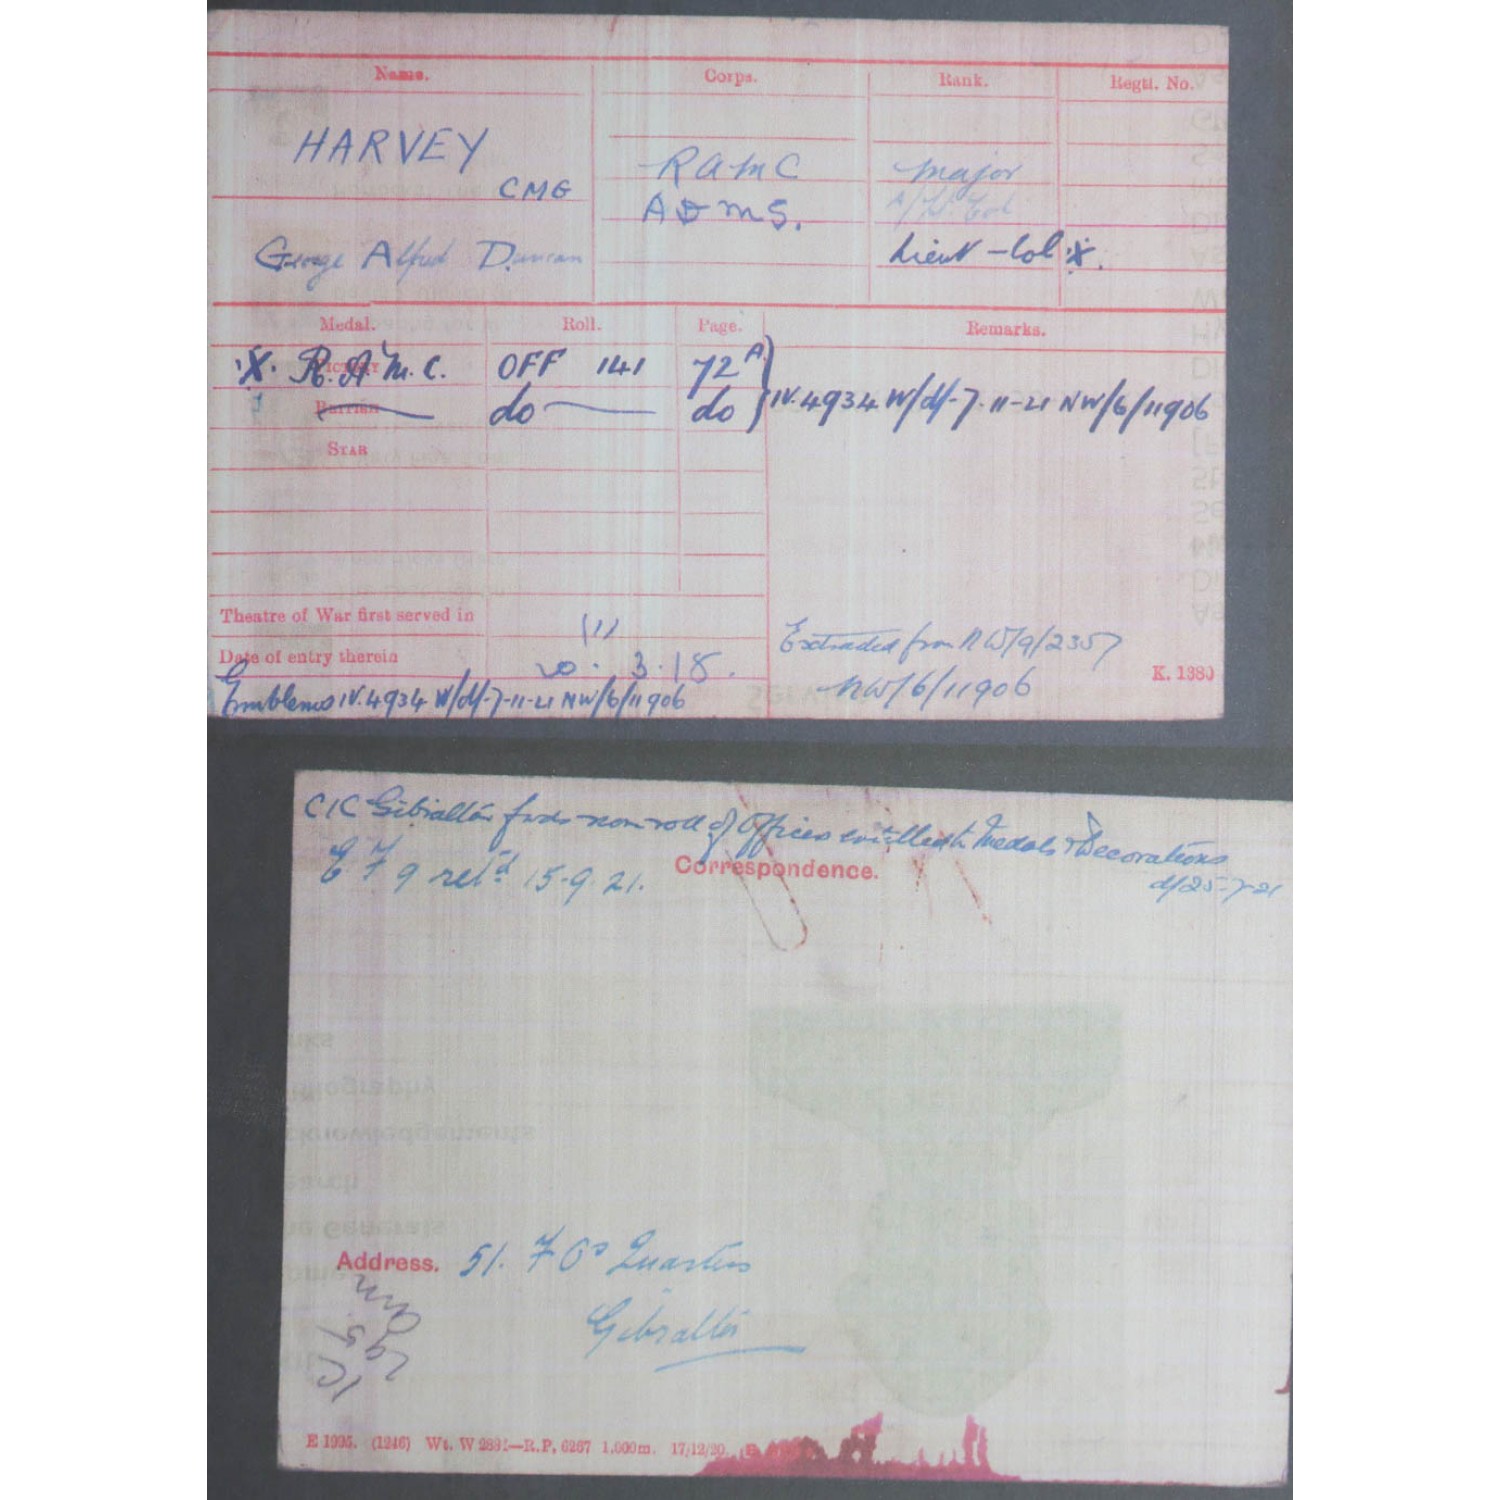 Name. Corps. Rank. Regtl. No.
HARVEY RAMC Major
CMG ADMS. A/Lt. Col
George Alfred Duncan Lieut-Col X.
Medal. Roll. Page. Remarks.
VICTORY
X. R.A.M.C. OFF 141 72A
BRITISH do do IV.4934 W/d/-7-11-21 NW/6/11906
STAR
Theatre of War first served in (1)
Date of entry therein 20.3.18.
Extracted from NW/9/2357
NW/6/11906
K. 1380
Emblems IV.4934 W/d/-7-11-21 NW/6/11906
CIC Gibraltar fwds nom roll of Officers entitled to Medals & Decorations
d/25-7-21
EF 9 retd 15.9.21.
Correspondence.
Address. 51. F Os Quarters
Gibraltar
E 1995. (1246) Wt. W 2891—R.P. 6267 1,500m. 17/12/20.